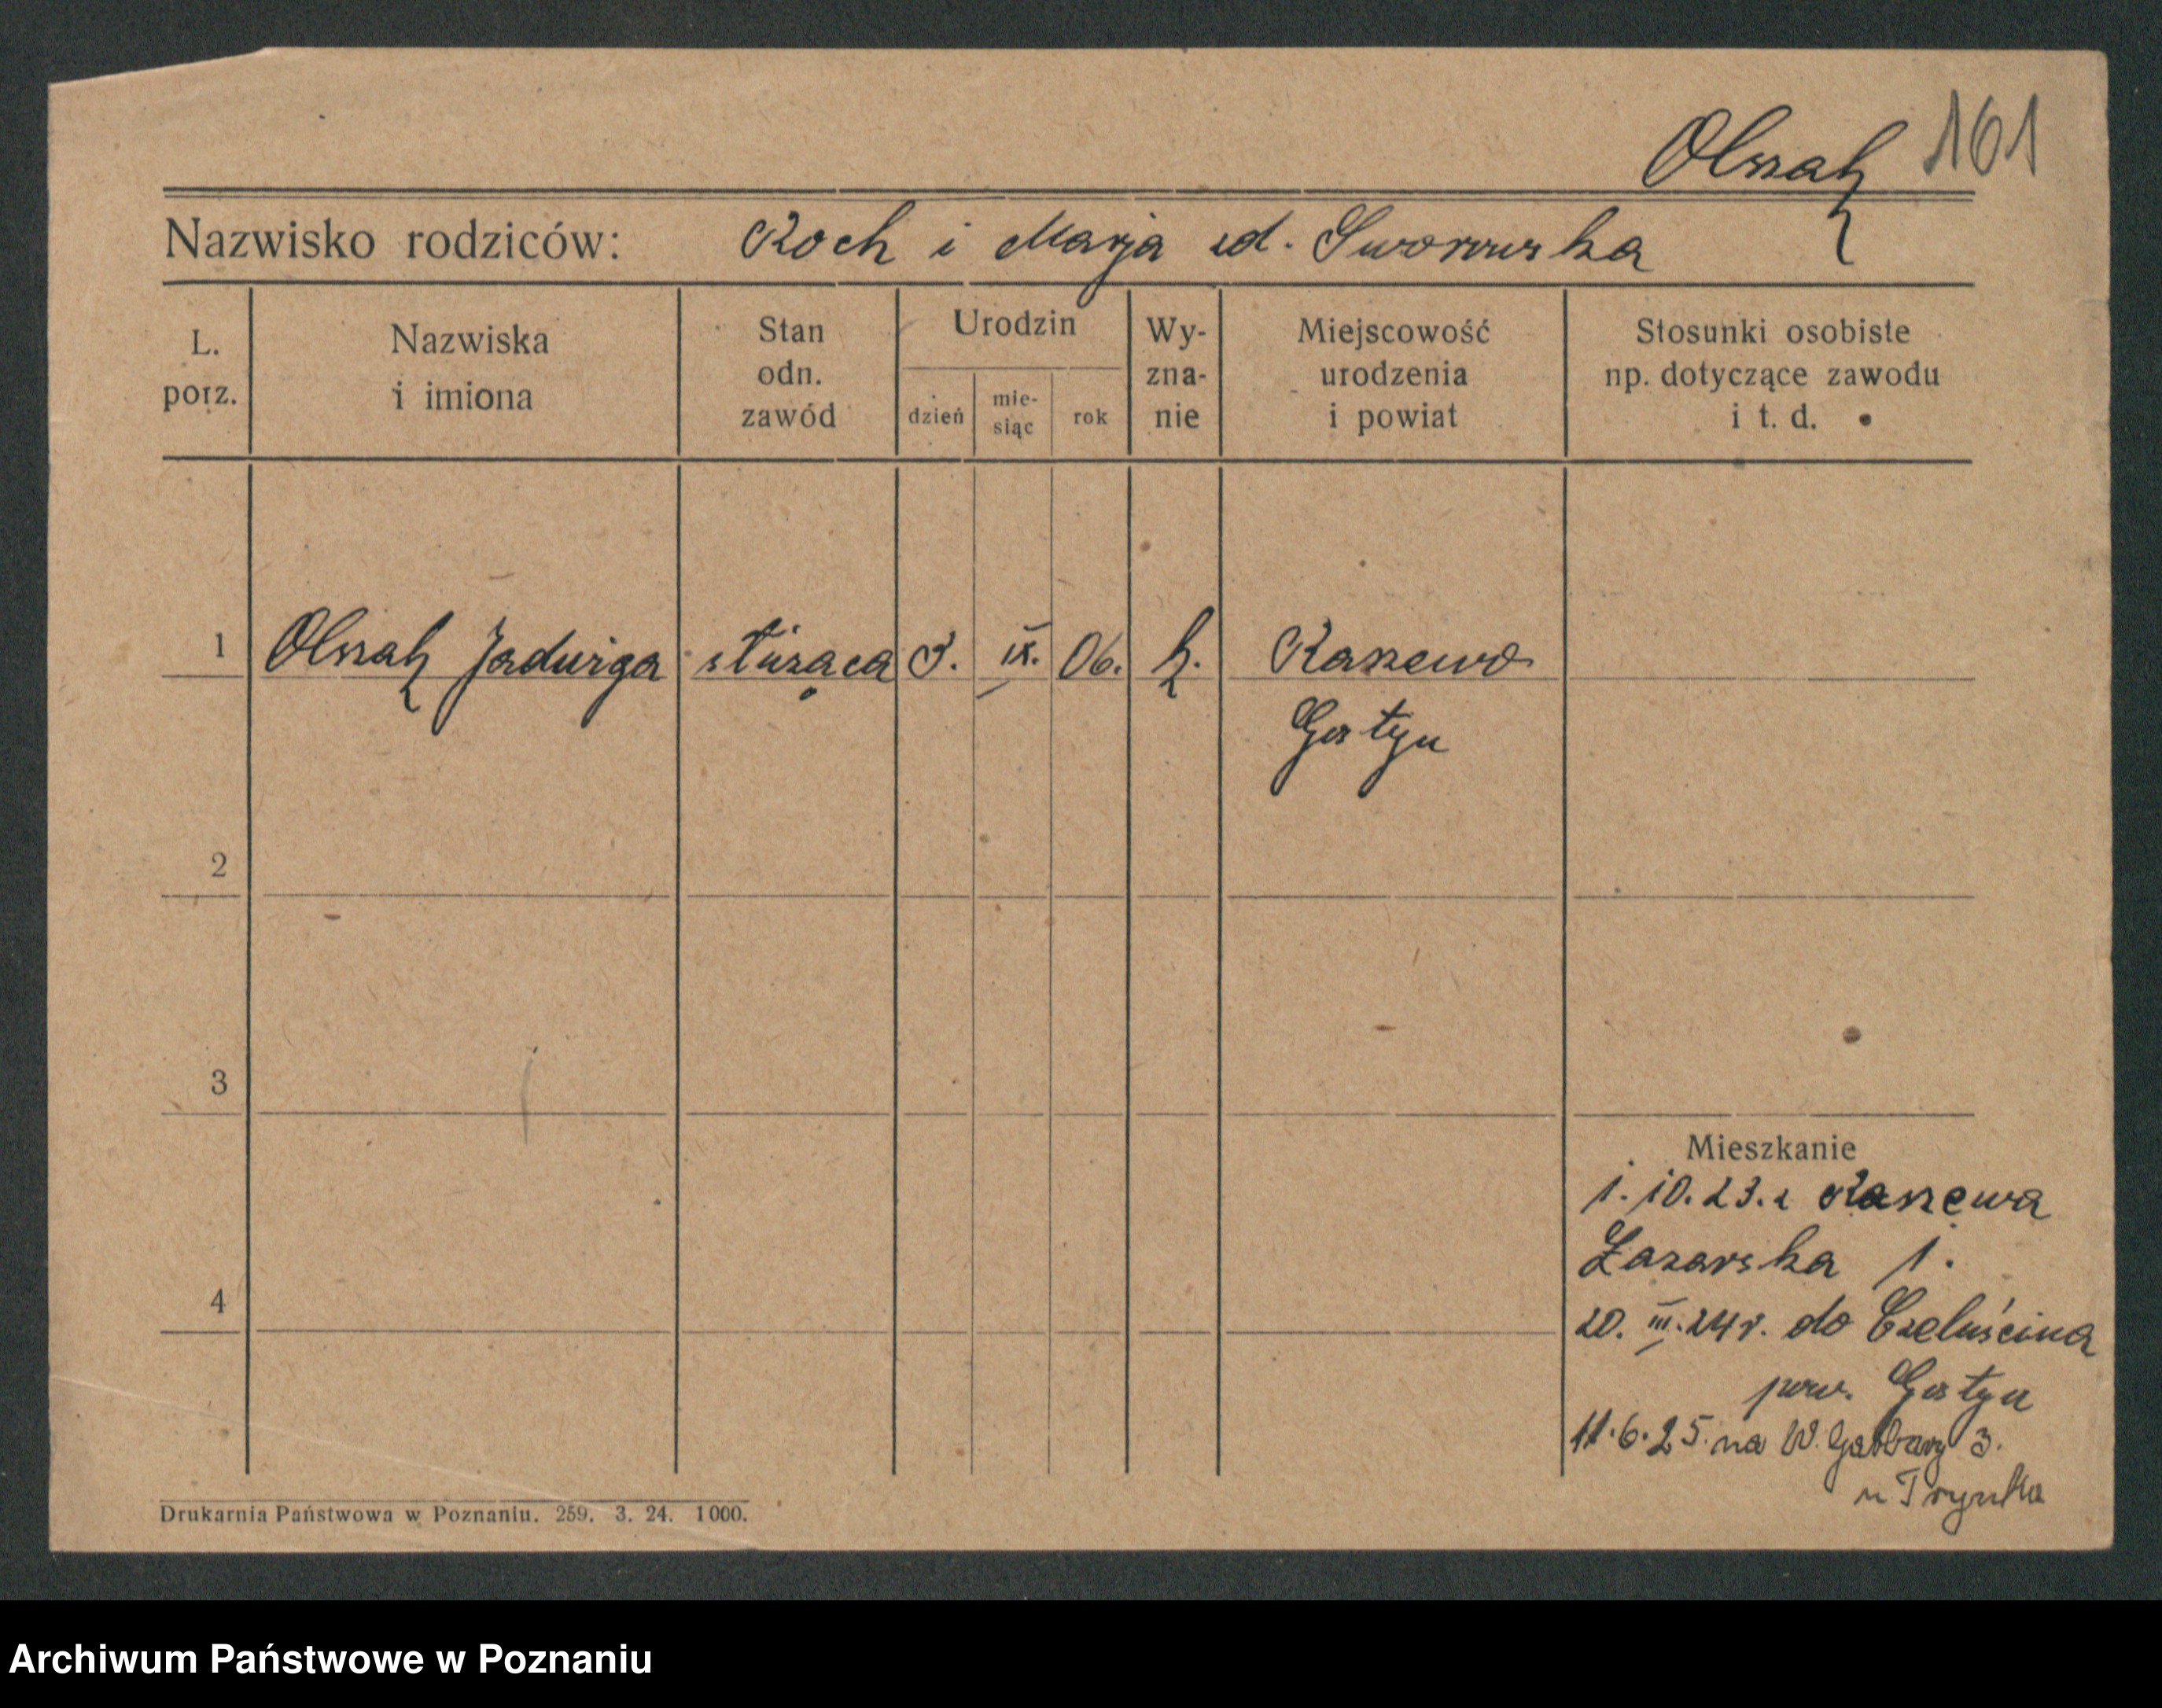 Olszak 161
Nazwisko rodziców: Roch i Marja zd. Sworowska
L. porz.
Nazwiska i imiona
Stan odn. zawód
Urodzin
dzień
mie-siąc
rok
Wy-zna-nie
Miejscowość urodzenia i powiat
Stosunki osobiste np. dotyczące zawodu i t. d.
1 Olszak Jadwiga służąca IX. 06. k. Raszewo
Gostyn
2
3
Mieszkanie
1. 10. 23. z Raszewa
Łazarska 1.
4
20. III. 24 r. do Czeluścina
pow. Gostyn
11. 6. 25. na W. Garbary 3.
u Trynka
Drukarnia Państwowa w Poznaniu. 259. 3. 24. 1000.
Archiwum Państwowe w Poznaniu